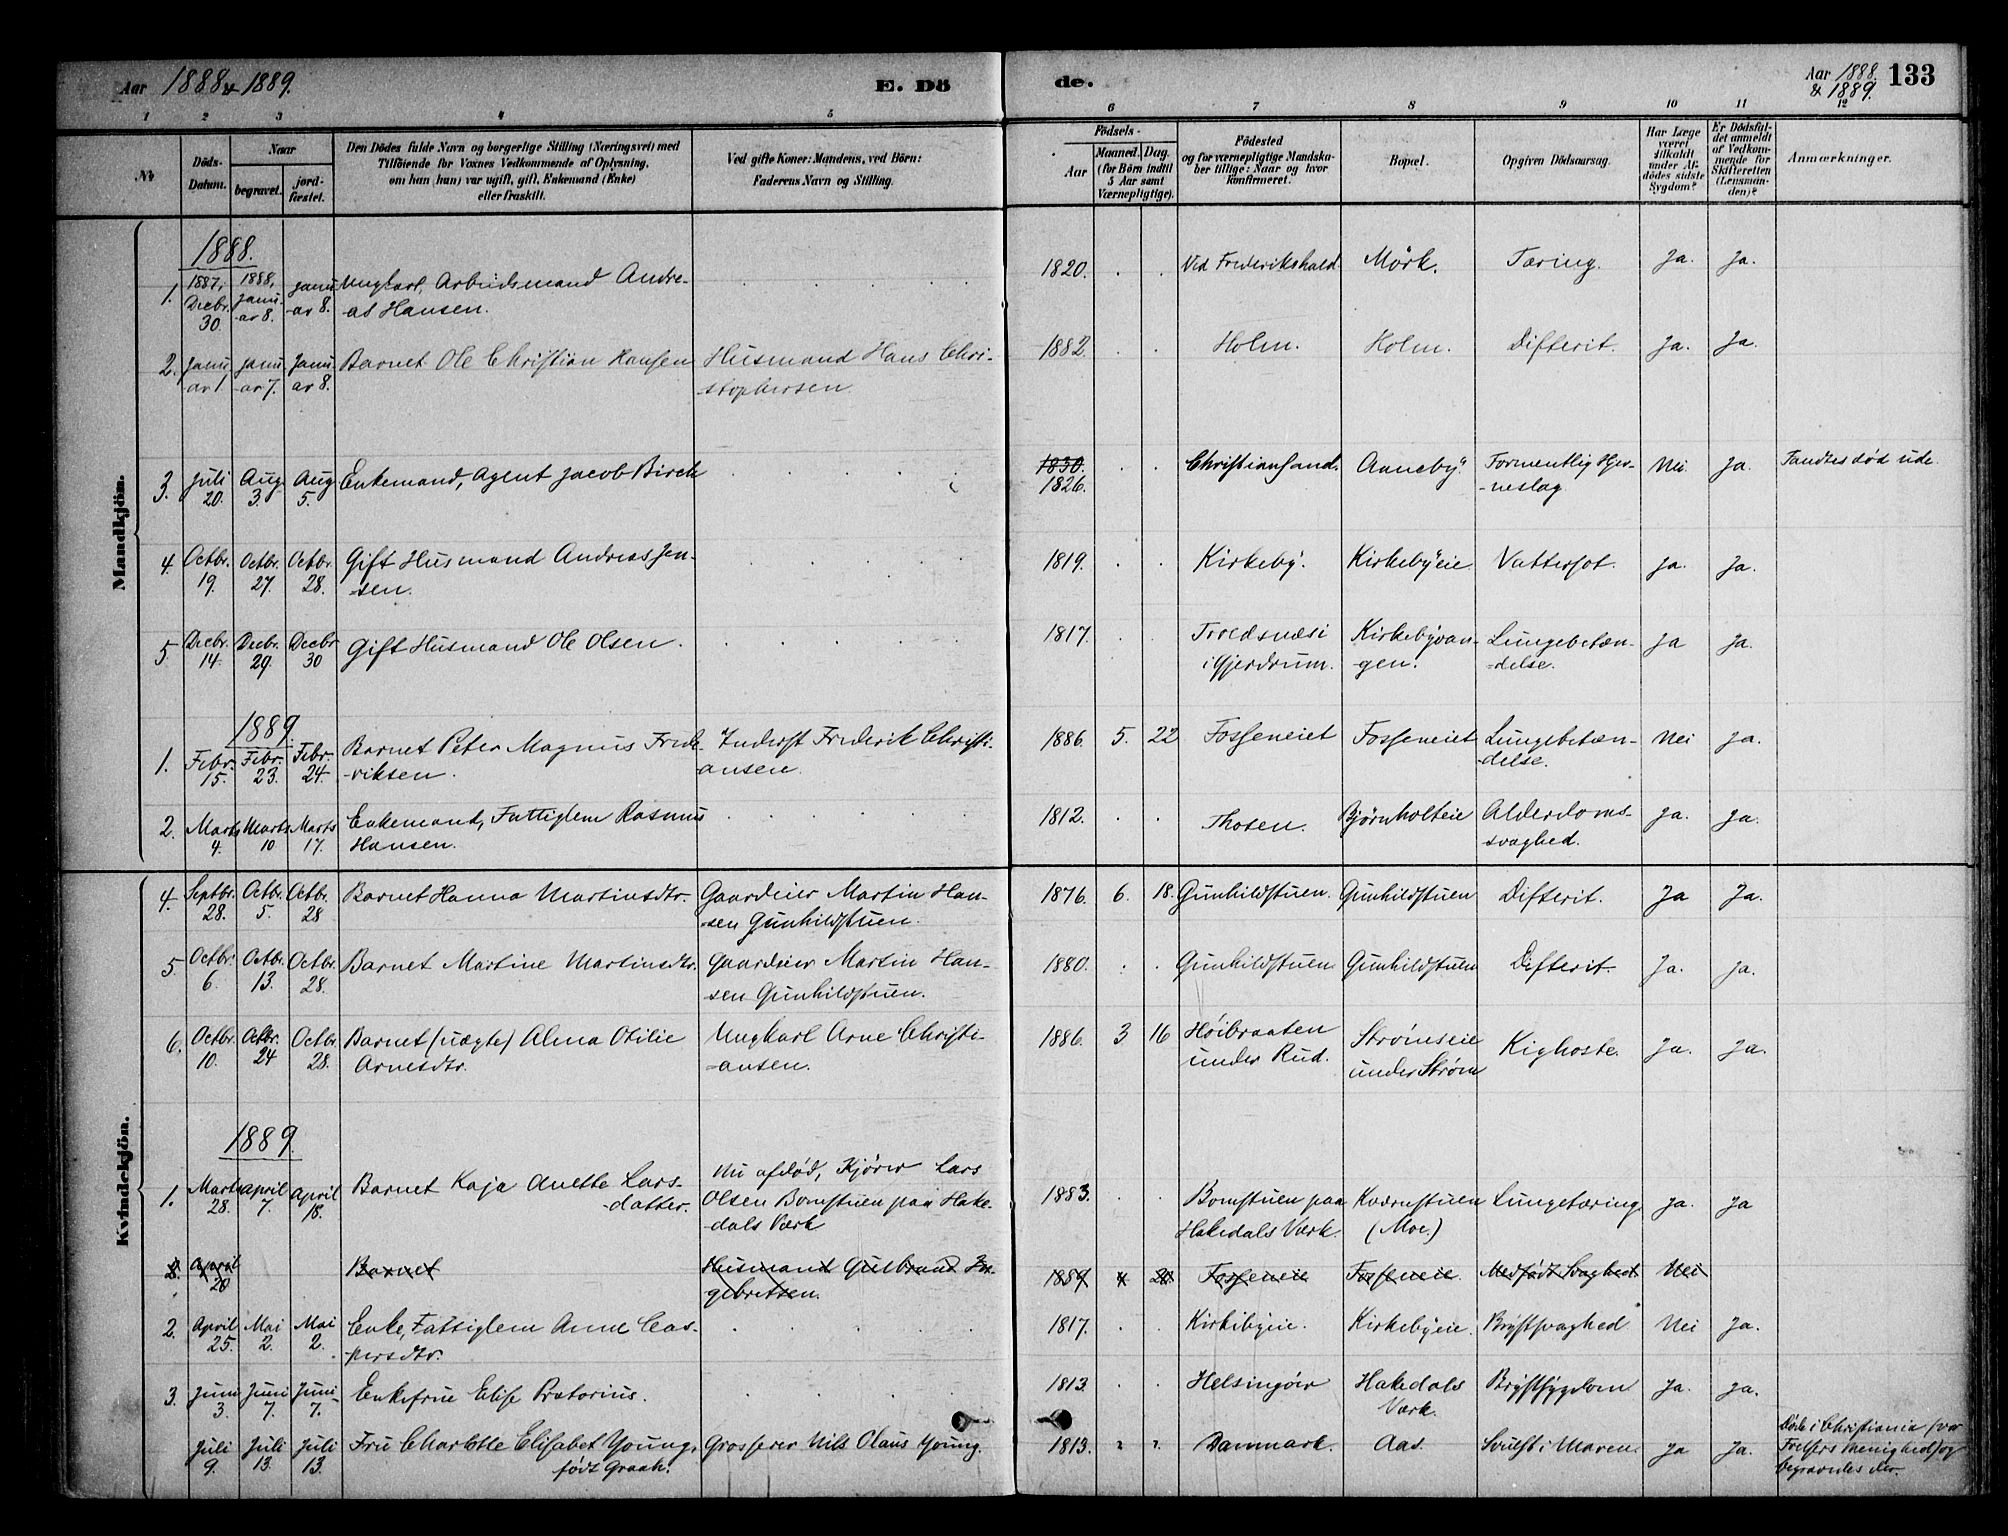 Aar 1888 & 1889.
E. Dö
de.
Aar 1888. & 1889.
133
1 2 3 4 5 6 7 8 9 10 11 12
№
Döds-Datum.
Naar
begravet.
jord-fæstet.
Den Dödes fulde Navn og borgerlige Stilling (Næringsvei) med
Tilföiende for Voxnes Vedkommende af Oplysning,
om han (hun) var ugift, gift, Enkemand (Enke)
eller fraskilt.
Ved gifte Koner: Mandens, ved Börn:
Faderens Navn og Stilling.
Födsels-
Aar
Maaned. Dag.
(for Börn indtil
5 Aar samt
Værnepligtige).
Födested
og for værnepligtige Mandska-
ber tillige: Naar og hvor
konfirmeret.
Bopæl.
Opgiven Dödsaarsag.
Har Læge
været
tilkaldt
under Af-
dødes sidste
Sygdom?
Er Dödsfal-
det anmeldt
af Vedkom-
mende for
Skifteretten
(Lensman-
den)?
Anmærkninger.
Mandkjön.
1888.
1. 1887, Decbr. 30. 1888, Janu-ar 8. Janu-ar 8. Ungkarl, Arbeidsmand Andre-
as Hansen. 1820. Ved Frederikshald. Mörk. Tæring. Ja. Ja.
2. Janu-ar 1. Janu-ar 7. Janu-ar 8. Barnet Ole Christian Hansen Husmand Hans Chri-
stophersen. 1882. Holm. Holm. Difterit. Ja. Ja.
3. Juli 20. Aug. 3. Aug. 5. Enkemand, Agent Jacob Birch 1830. 1826. Christiansand. Aaneby. Formentlig Hjer-
neslag Nei Ja. Fandtes død ude.
4. Octbr. 19. Octbr. 27. Octbr. 28. Gift Husmand Andreas Jen-
sen. 1819. Kirkeby. Kirkebyeie. Vattersot. Ja. Ja.
5. Decbr. 14. Decbr. 29. Decbr 30 Gift Husmand Ole Olsen. 1817. i Gjerdrum. Kirkebyvan-
gen. Lungebetæn-
delse. Ja Ja.
1889.
1. Febr. 15. Febr. 23. Febr. 24. Barnet Peter Magnus Frede-
riksen. Inderst Frederik Christi-
ansen. 1886. 5. 22 Fosseneiet Fosseneiet Lungebetæn-
delse. Nei Ja.
2. Marts 4. Marts 10 Marts 17. Enkemand, Fattiglem Rasmus
Hansen. 1812. Thosen. Bjørnholteie Alderdoms-
svaghed. Ja. Ja.
Kvindekjön.
4. Septbr. 28. Octbr. 5. Octbr. 28 Barnet Hanna Martinsdtr. Gaardeier Martin Han-
sen Gunhildstuen. 1876. 6. 18. Gunhildstuen. Gunhildstuen Difterit. Ja Ja.
5 Octbr. 6. Octbr. 13. Octbr. 28. Barnet Martine Martinsdtr. Gaardeier Martin Han-
sen Gunhildstuen. 1880. Gunhildstuen Gunhildstuen Difterit. Ja. Ja.
6. Octbr. 10. Octbr. 24 Octbr. 28. Barnet (uægte) Alma Otilie
Arnesdtr. Ungkarl Arne Christi-
ansen. 1886. 3 16 Høibraaten
under Rud. Strømseie
under Strøm Kighoste. Ja. Ja.
1889.
1. Marts 28. April 7. April 18. Barnet Kaja Anette Lars-
datter. Nu afdød, Kjører Lars
Olsen Bomstuen paa Hake-
dals Værk 1883. Bomstuen paa
Hakedals Værk. Kværnstuen
(Moe.) Lungetæring. Ja. Ja
2. April 20 Barnet Husmand Gulbrand In-
gebretsen. 1889 4 20 Fosseneie Fosseneie. Medfødt Svaghed Nei
2. April 25. Mai 2. Mai 2. Enke, Fattiglem Anne Cas-
persdtr. 1817. Kirkebyeie. Kirkebyeie. Brystsvaghed Nei Ja.
3. Juni 3. Juni 7. Juni 7. Enkefrue Elise Prætorius. 1813. Helsingøer Hakedals
Værk. Brystsygdom Ja. Ja.
Juli 9. Juli 13. Juli 13. Fru Charlotte Elisabet Young,
født Graah. Grosserer Nils Claus Young. 1813. ? ? Danmark. Aas. Svulst i Maven. Ja Ja. Døde i Christiania (vor
Frelsers Menighed) og
begravedes der.